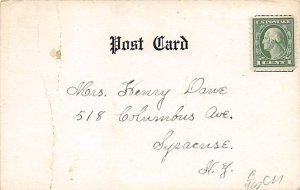 Post Card
U.S. POSTAGE
1 CENT 1
Mrs. Henry Dawe
518 Columbus Ave.
Syracuse.
N.Y.